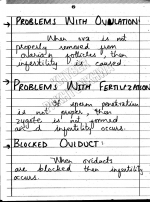 → PROBLEMS WITH OVULATION:
When ova is not
properly removed from
ovarian follicles, then
infertility is caused.
→ PROBLEMS WITH FERTILIZATION
sperm penetration
is not proper, then
zygote is not formed
and infertility occurs.
→ BLOCKED OVIDUCT:
When oviducts
are blocked then infertility
occurs.